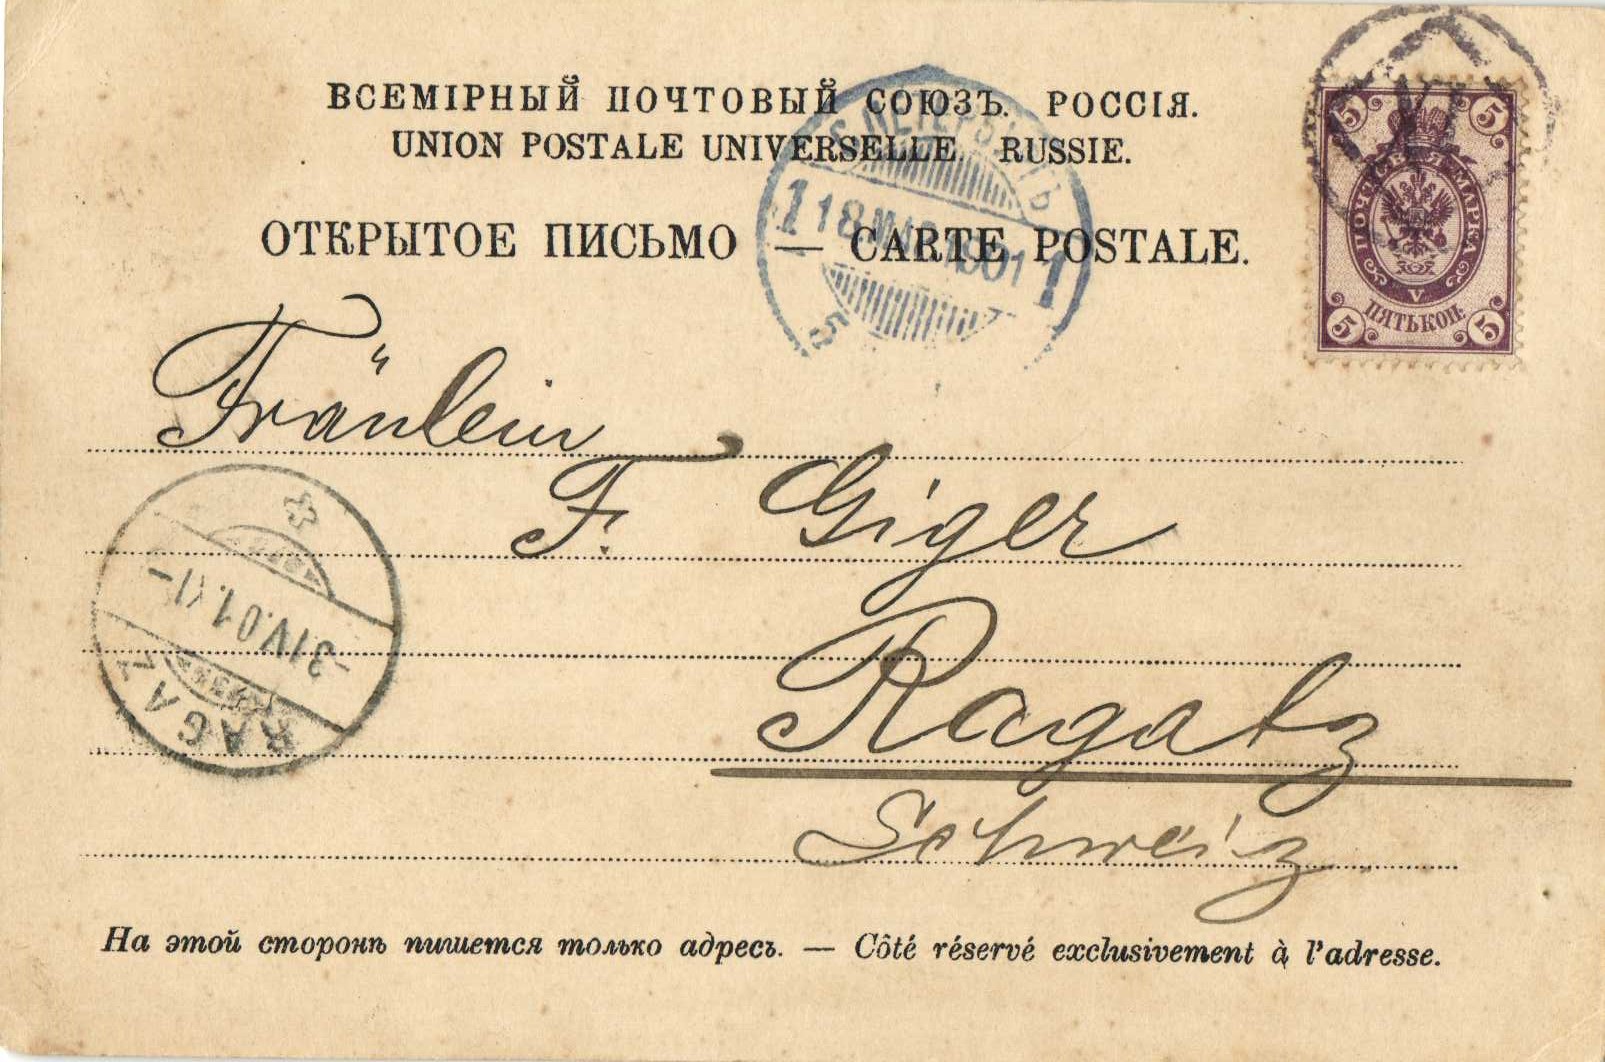 ВСЕМІРНЫЙ ПОЧТОВЫЙ СОЮЗЪ. РОССІЯ.
UNION POSTALE UNIVERSELLE. RUSSIE.
ОТКРЫТОЕ ПИСЬМО — CARTE POSTALE.
1 18 MAR 1901 1
5
5 5
ПОЧТОВАЯ МАРКА
V
ПЯТЬ КОП.
5 5
Fräulein
F. Giger
Ragatz
Schweiz
-3 IV.01.
RAGAZ
На этой сторонѣ пишется только адресъ. — Côté réservé exclusivement à l'adresse.